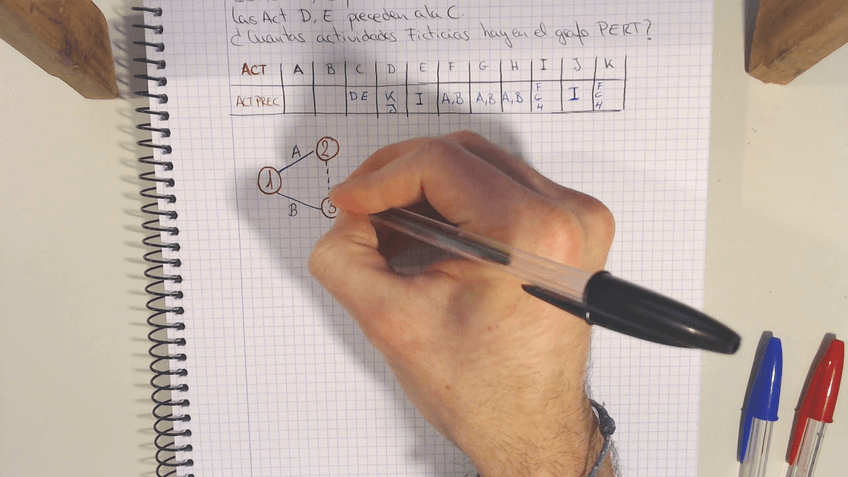 Las Act D, E preceden a la C.
¿Cuantas actividades Ficticias hay en el grafo PERT?
ACT A B C D E F G H I J K
ACT PREC D E K J I A,B A,B A,B F G H I F G H
A
2
1
B
3